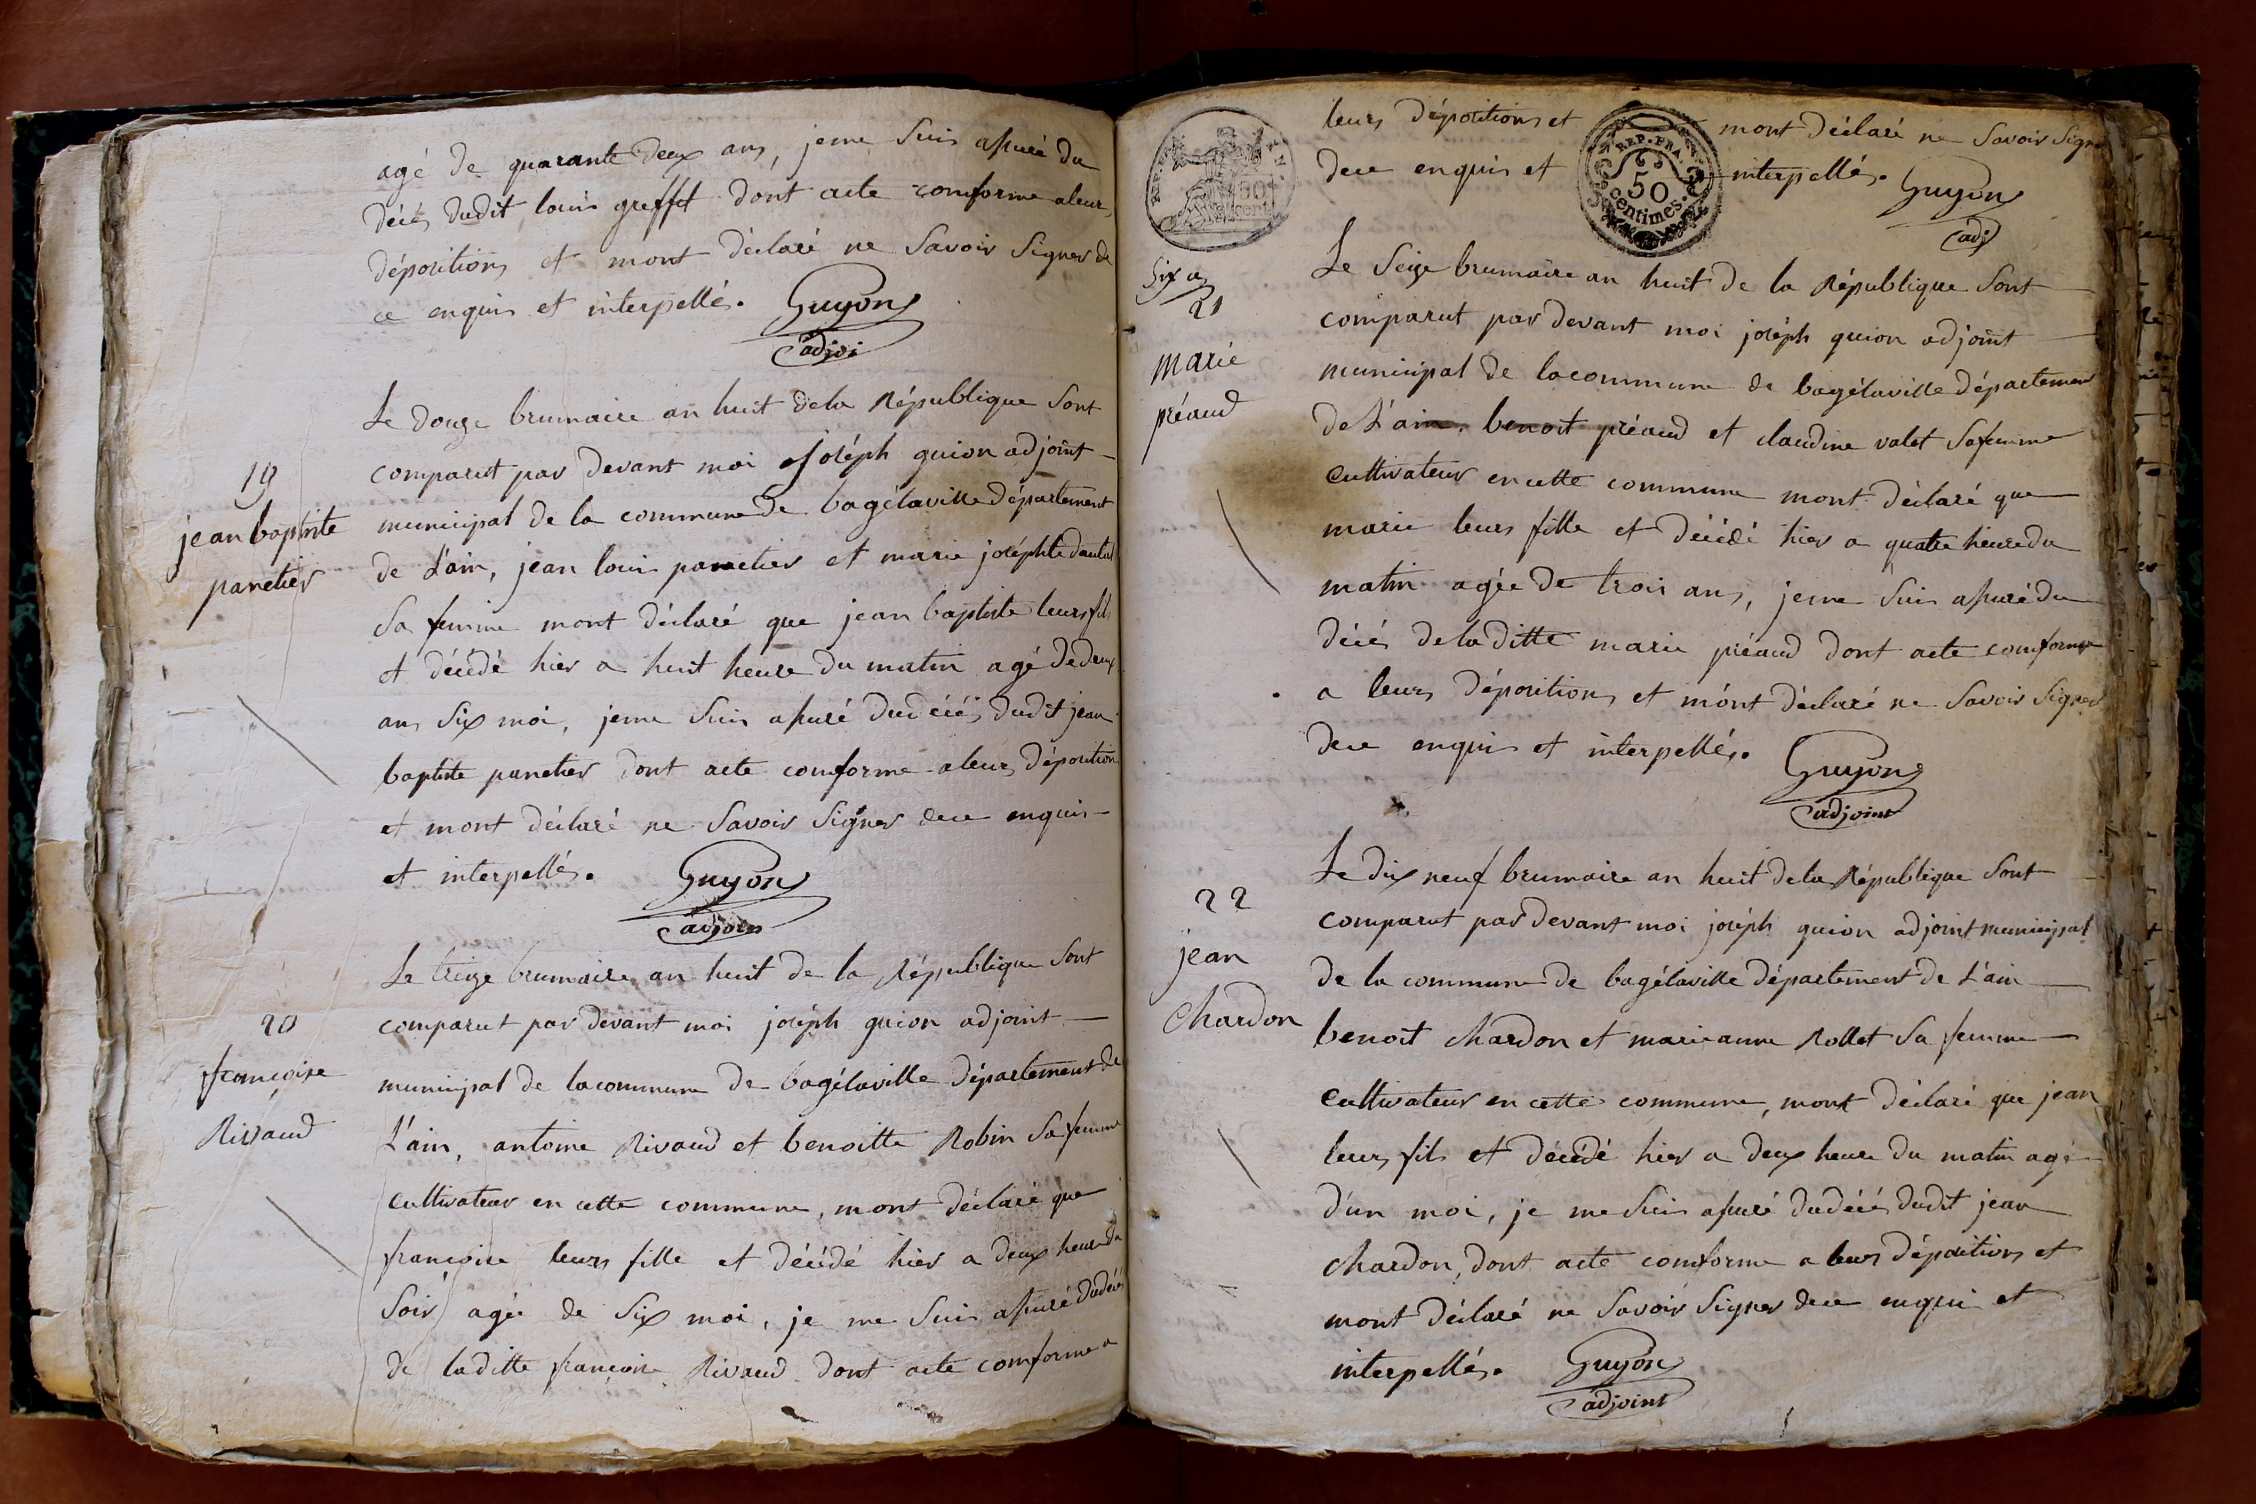 agé de quarante deux ans, jeme suis assuré du
décés dudit louis greffet dont acte comforme aleurs
dépositions et mont déclaré ne savoir signer de
ce enquis et interpellés. Guyon
adjoi
Le douze brumaire an huit dela République sont
comparut par devant moi joséph guion adjoint
19
jean baptiste
panetier
municipal de la commune de bagélaville département
de L'ain, jean louis panetier et marie joséphte
sa femme mont déclaré que jean baptiste leurs fils
et décédé hier a huit heure du matin agé de deux
ans six moi, jeme suis assuré dudécés dudit jean
baptiste panetier dont acte comforme aleurs déposition
et mont déclaré ne savoir signer dece enquis
et interpellés. Guyon
adjoin
Le treize brumaire an huit de la République sont
20
françoise
Rivaud
comparut par devant moi joséph guion adjoint
municipal de lacommune de bagélaville département de
L'ain, antoine Rivaud et benoitte Robin sa femme
cultivateur en cette commune, mont déclaré que
françoise leurs fille et décédé hier a deux heure du
soir agée de six moi, je me suis assuré dudécés
de laditte françoise Rivaud dont acte comforme a
REP. FRA.
50
cent
leurs dépositions et mont déclaré ne savoir signer
REP. FRA.
50
centimes.
dece enquis et interpellés. Guyon
adj
Six
21
marie
préaud
Le seize brumaire an huit de la République sont
comparut par devant moi joséph guion adjoint
municipal de lacommune de bagélaville département
de L'ain, benoit préaud et claudine valet safemme
cultivateur encette commune mont déclaré que
marie leurs fille et décédé hier a quatre heure du
matin agée de trois ans, jeme suis assuré du
décés deladitte marie préaud dont acte comforme
a leurs dépositions et mont déclaré ne savoir signer
dece enquis et interpellés. Guyon
adjoint
22
jean
chardon
Le dix neuf brumaire an huit dela République sont
comparut par devant moi joséph guion adjoint municipal
de la commune de bagélaville département de L'ain
benoit chardon et marieanne Rollet sa femme
cultivateur en cette commune, mont déclaré que jean
leurs fils et décédé hier a deux heure du matin agé
d'un moi, je me suis assuré dudécés dudit jean
chardon, dont acte comforme a leurs dépositions et
mont déclaré ne savoir signer dece enquis et
interpellés. Guyon
adjoint